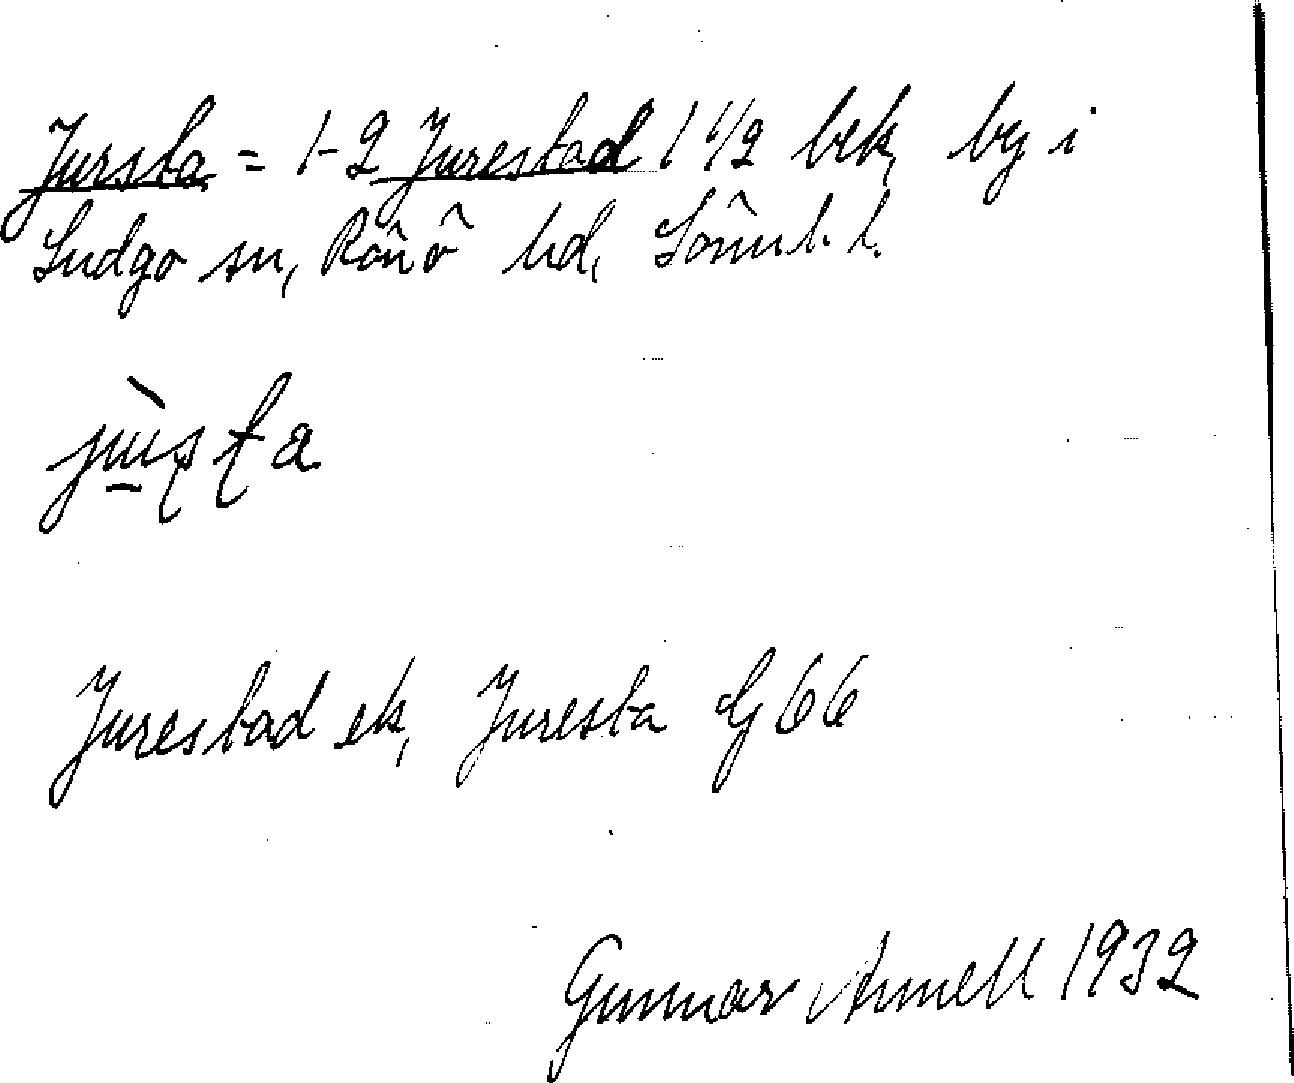 Jursta = 1-2 Jurestad 1 1/2 bek, by i
Ludgo sn, Rönö hd, Sörml. l.
Jurestad ek, Juresta Gj 66
Gunnar Arnell 1932